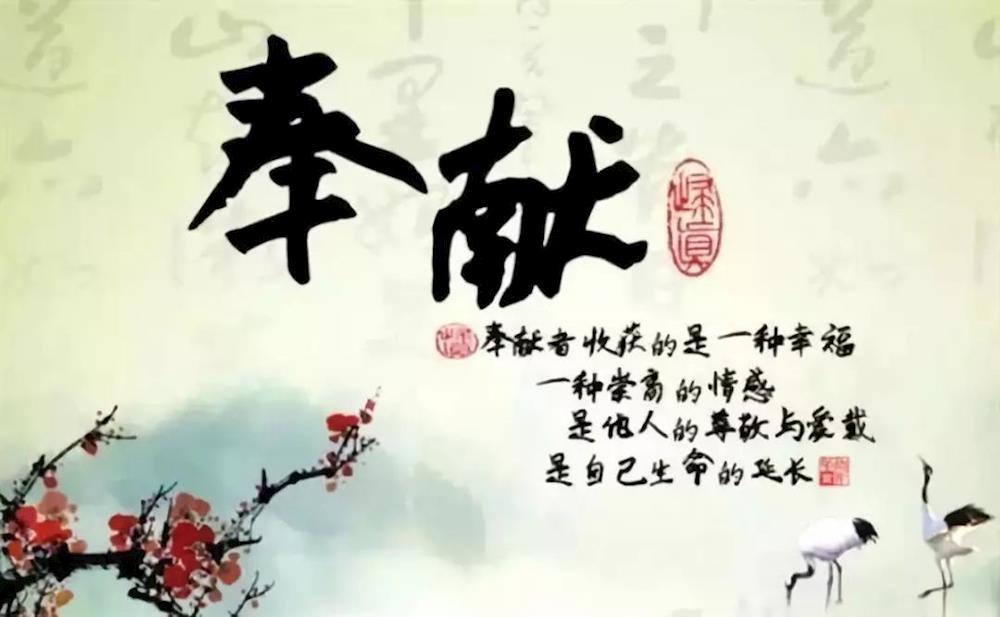 奉献
奉献者收获的是一种幸福
一种崇高的情感
是他人的尊敬与爱戴
是自己生命的延长